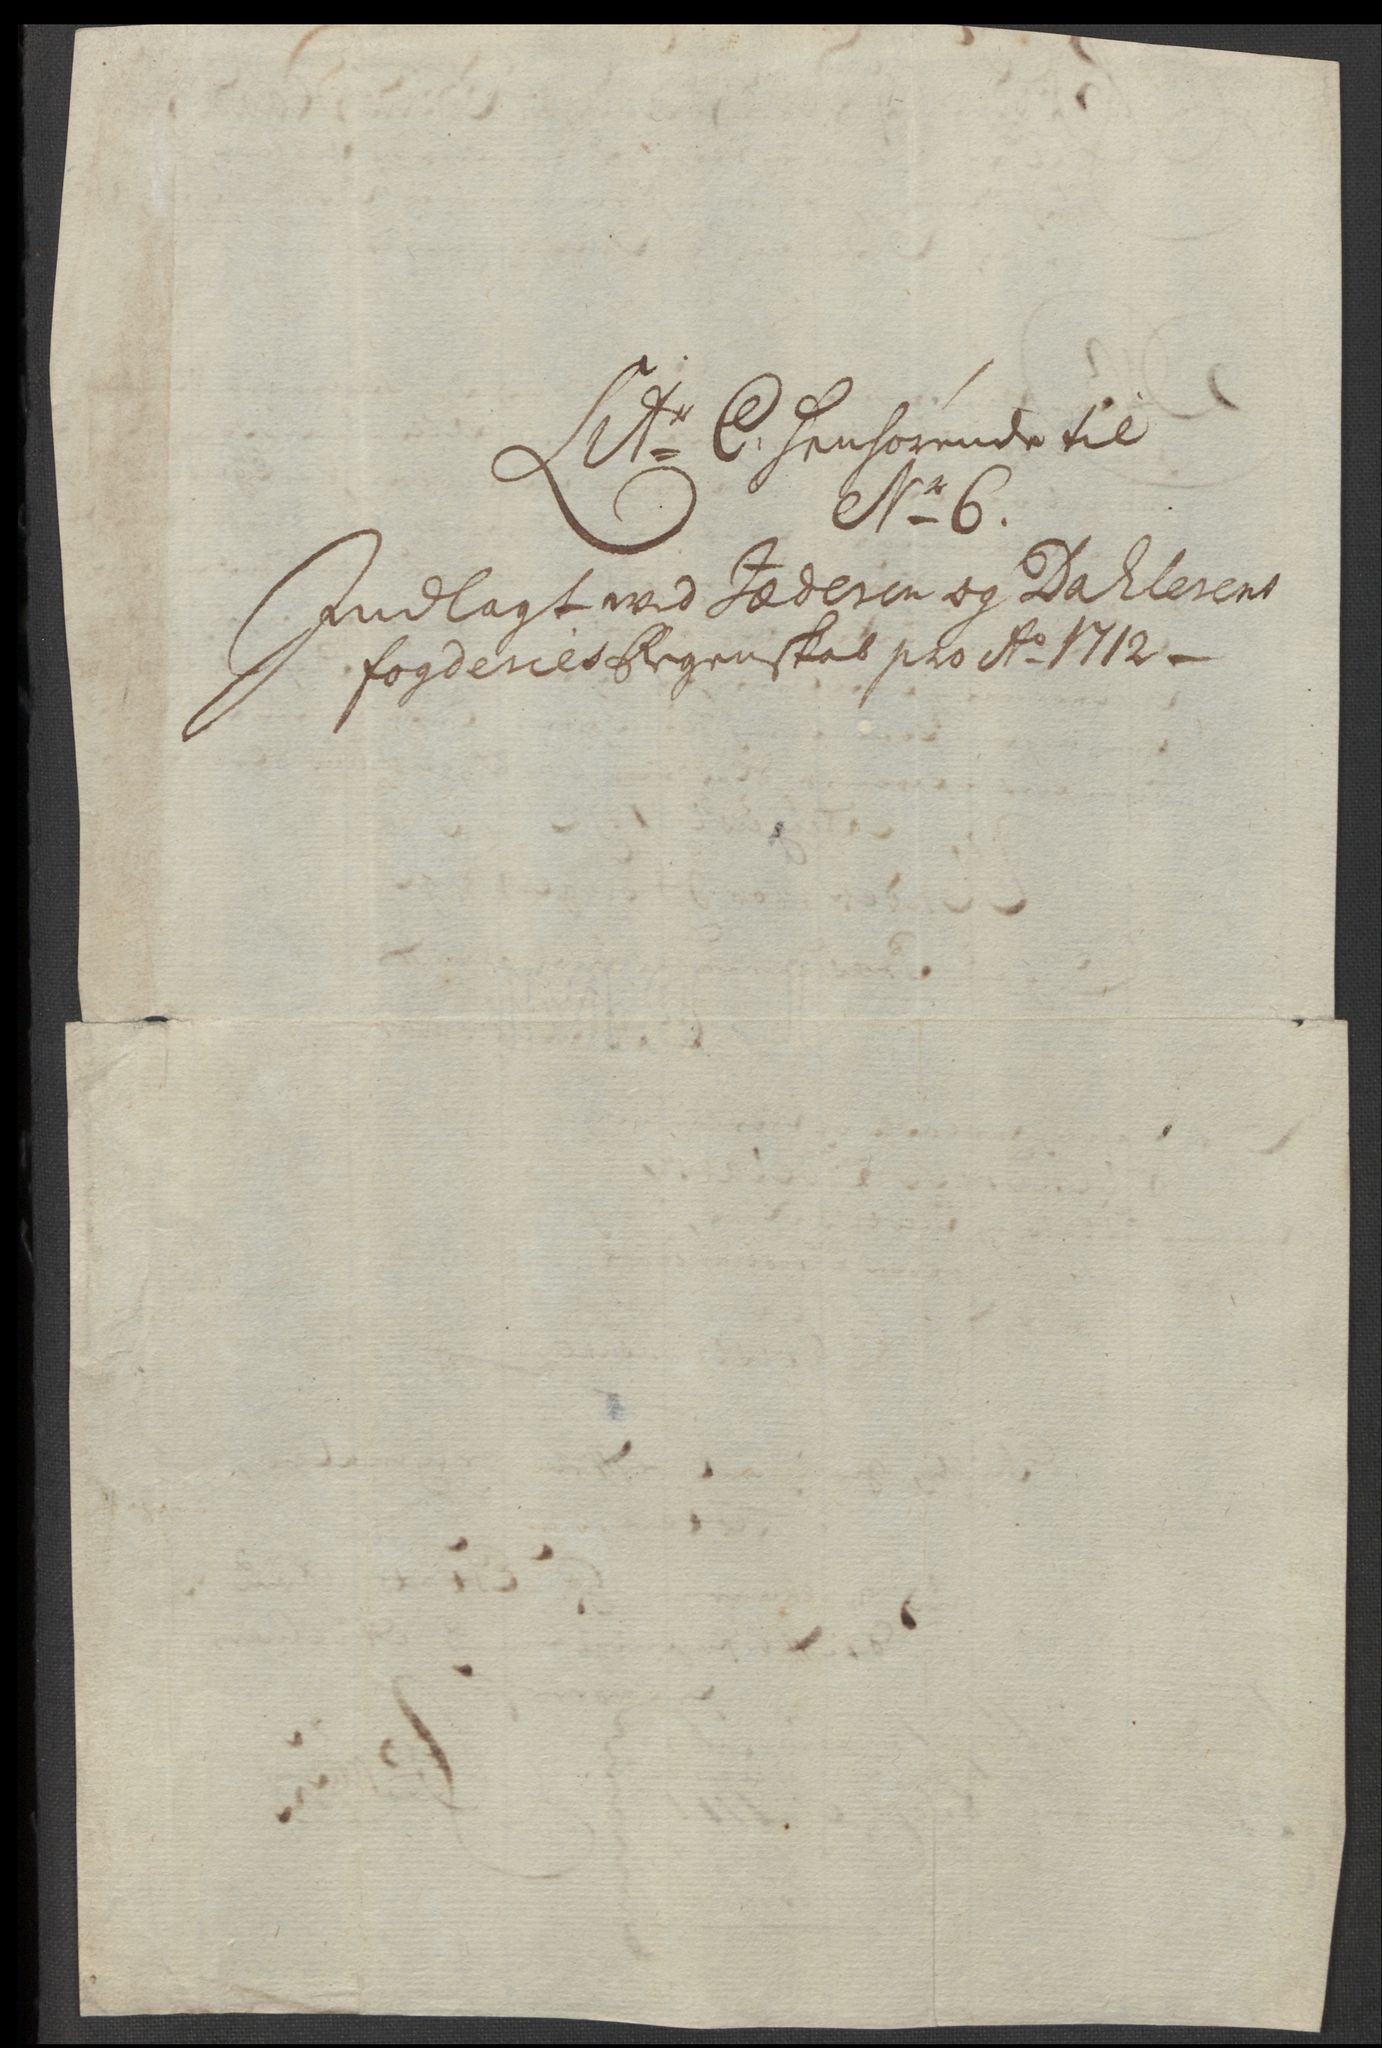 Littr C. henhörende til
Nr 6.
Indlagt wed Jæderen og Dahlerens
fogderies Regenskab pro Ao 1712 —